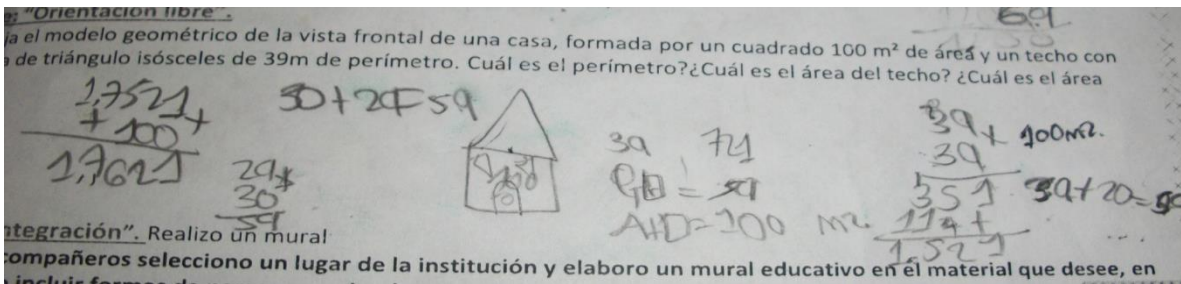 "Orientación libre".
ja el modelo geométrico de la vista frontal de una casa, formada por un cuadrado 100 m² de área y un techo con
de triángulo isósceles de 39m de perímetro. Cuál es el perímetro?¿Cuál es el área del techo? ¿Cuál es el área
1,7521+
+100
1,7621
30+29=59
29+
30
59
39 71
A+D=100 m2.
39x 100m2.
39
351
117+
1.521
ntegración". Realizo un mural
compañeros selecciono un lugar de la institución y elaboro un mural educativo en el material que desee, en